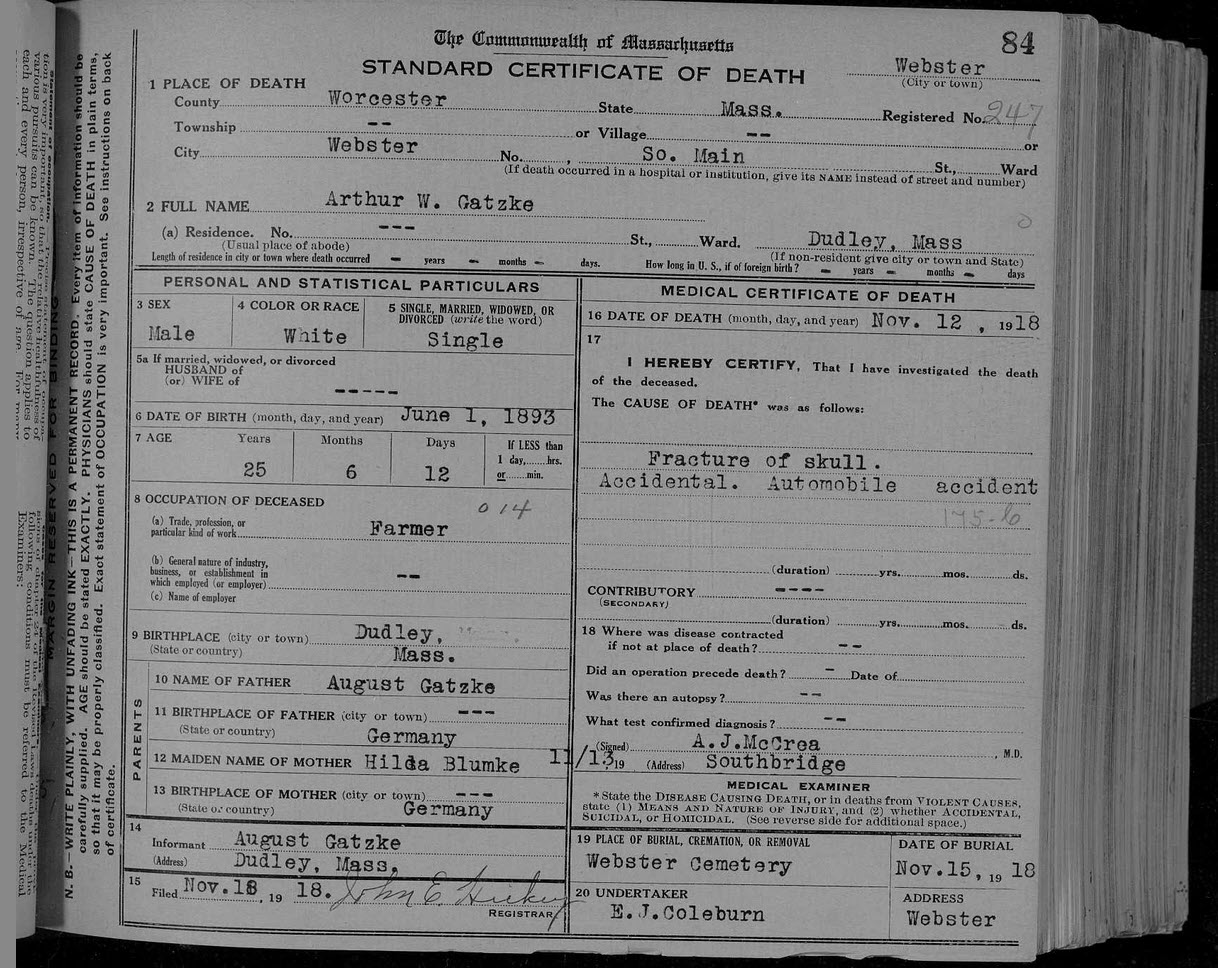 The Commonwealth of Massachusetts
84
STANDARD CERTIFICATE OF DEATH
Webster
(City or town)
1 PLACE OF DEATH
County Worcester State Mass. Registered No. 247
Township -- or Village -- or
City Webster No. , So. Main St., Ward
(If death occurred in a hospital or institution, give its NAME instead of street and number)
2 FULL NAME Arthur W. Gatzke
(a) Residence. No. --- St., Ward. Dudley, Mass
(Usual place of abode) (If non-resident give city or town and State)
Length of residence in city or town where death occurred - years - months - days. How long in U. S., if of foreign birth? - years - months - days
PERSONAL AND STATISTICAL PARTICULARS
3 SEX
Male
4 COLOR OR RACE
White
5 SINGLE, MARRIED, WIDOWED, OR
DIVORCED (write the word)
Single
5a If married, widowed, or divorced
HUSBAND of
(or) WIFE of
-----
6 DATE OF BIRTH (month, day, and year) June 1, 1893
7 AGE Years Months Days If LESS than
1 day, hrs.
25 6 12 or min.
8 OCCUPATION OF DECEASED
0 14
(a) Trade, profession, or
particular kind of work Farmer
(b) General nature of industry,
business, or establishment in
which employed (or employer) --
(c) Name of employer
9 BIRTHPLACE (city or town) Dudley,
(State or country) Mass.
PARENTS
10 NAME OF FATHER August Gatzke
11 BIRTHPLACE OF FATHER (city or town) ---
(State or country) Germany
12 MAIDEN NAME OF MOTHER Hilda Blumke
13 BIRTHPLACE OF MOTHER (city or town) ---
(State or country) Germany
14
Informant August Gatzke
(Address) Dudley, Mass.
15
Filed Nov. 18, 19 18. John E. Hickey
REGISTRAR
MEDICAL CERTIFICATE OF DEATH
16 DATE OF DEATH (month, day, and year) Nov. 12 , 1918
17
I HEREBY CERTIFY, That I have investigated the death
of the deceased.
The CAUSE OF DEATH* was as follows:
Fracture of skull.
Accidental. Automobile accident
(duration) yrs. mos. ds.
CONTRIBUTORY ----
(SECONDARY)
(duration) yrs. mos. ds.
18 Where was disease contracted
if not at place of death? --
Did an operation precede death? - Date of
Was there an autopsy? --
What test confirmed diagnosis? --
(Signed) A.J.McCrea , M.D.
11/13 19 (Address) Southbridge
MEDICAL EXAMINER
* State the DISEASE CAUSING DEATH, or in deaths from VIOLENT CAUSES,
state (1) MEANS AND NATURE OF INJURY, and (2) whether ACCIDENTAL,
SUICIDAL, or HOMICIDAL. (See reverse side for additional space.)
19 PLACE OF BURIAL, CREMATION, OR REMOVAL
Webster Cemetery
DATE OF BURIAL
Nov.15, 19 18
20 UNDERTAKER
E.J.Coleburn
ADDRESS
Webster
MARGIN RESERVED FOR BINDING
N. B.—WRITE PLAINLY, WITH UNFADING INK—THIS IS A PERMANENT RECORD. Every item of information should be
carefully supplied. AGE should be stated EXACTLY. PHYSICIANS should state CAUSE OF DEATH in plain terms,
so that it may be properly classified. Exact statement of OCCUPATION is very important. See instructions on back
of certificate.